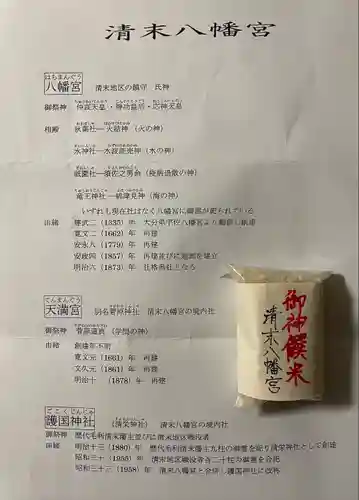 清末八幡宮
はちまんぐう
八幡宮 清末地区の鎮守 氏神
御祭神 仲哀天皇・神功皇后・応神天皇
相殿 秋葉社―火結神（火の神）
水神社―水波能売神（水の神）
祇園社―須佐之男命（疫病退散の神）
竜王神社―綿津見神（海の神）
いずれも現在社はなく八幡宮に御霊が祀られている
由緒 建武二（1335）年 大分県宇佐八幡宮より御霊し鎮座
寛文二（1662）年 再建
安永八（1779）年 再建
安政四（1857）年 再建並びに廻廊を建立
明治六（1873）年 社格郷社となる
てんまんぐう
天満宮 別名菅原神社 清末八幡宮の境内社
御祭神 菅原道真（学問の神）
由緒 創建年不明
寛文元（1661）年 再建
文久元（1861）年 再建
明治十 （1878）年 再建
ごこくじんじゃ
護国神社 （清栄神社） 清末八幡宮の境内社
御祭神 歴代毛利清末藩主並びに清末地区戦没者
由緒 明治十三（1880）年 歴代毛利清末藩主九柱の御霊を祀り清栄神社として創建
昭和三十（1955）年 清末地区戦没者二百二十七柱の御霊を合祀
昭和三十三（1958）年 清末八幡宮と合併し護国神社に改称
御神饌米
清末八幡宮